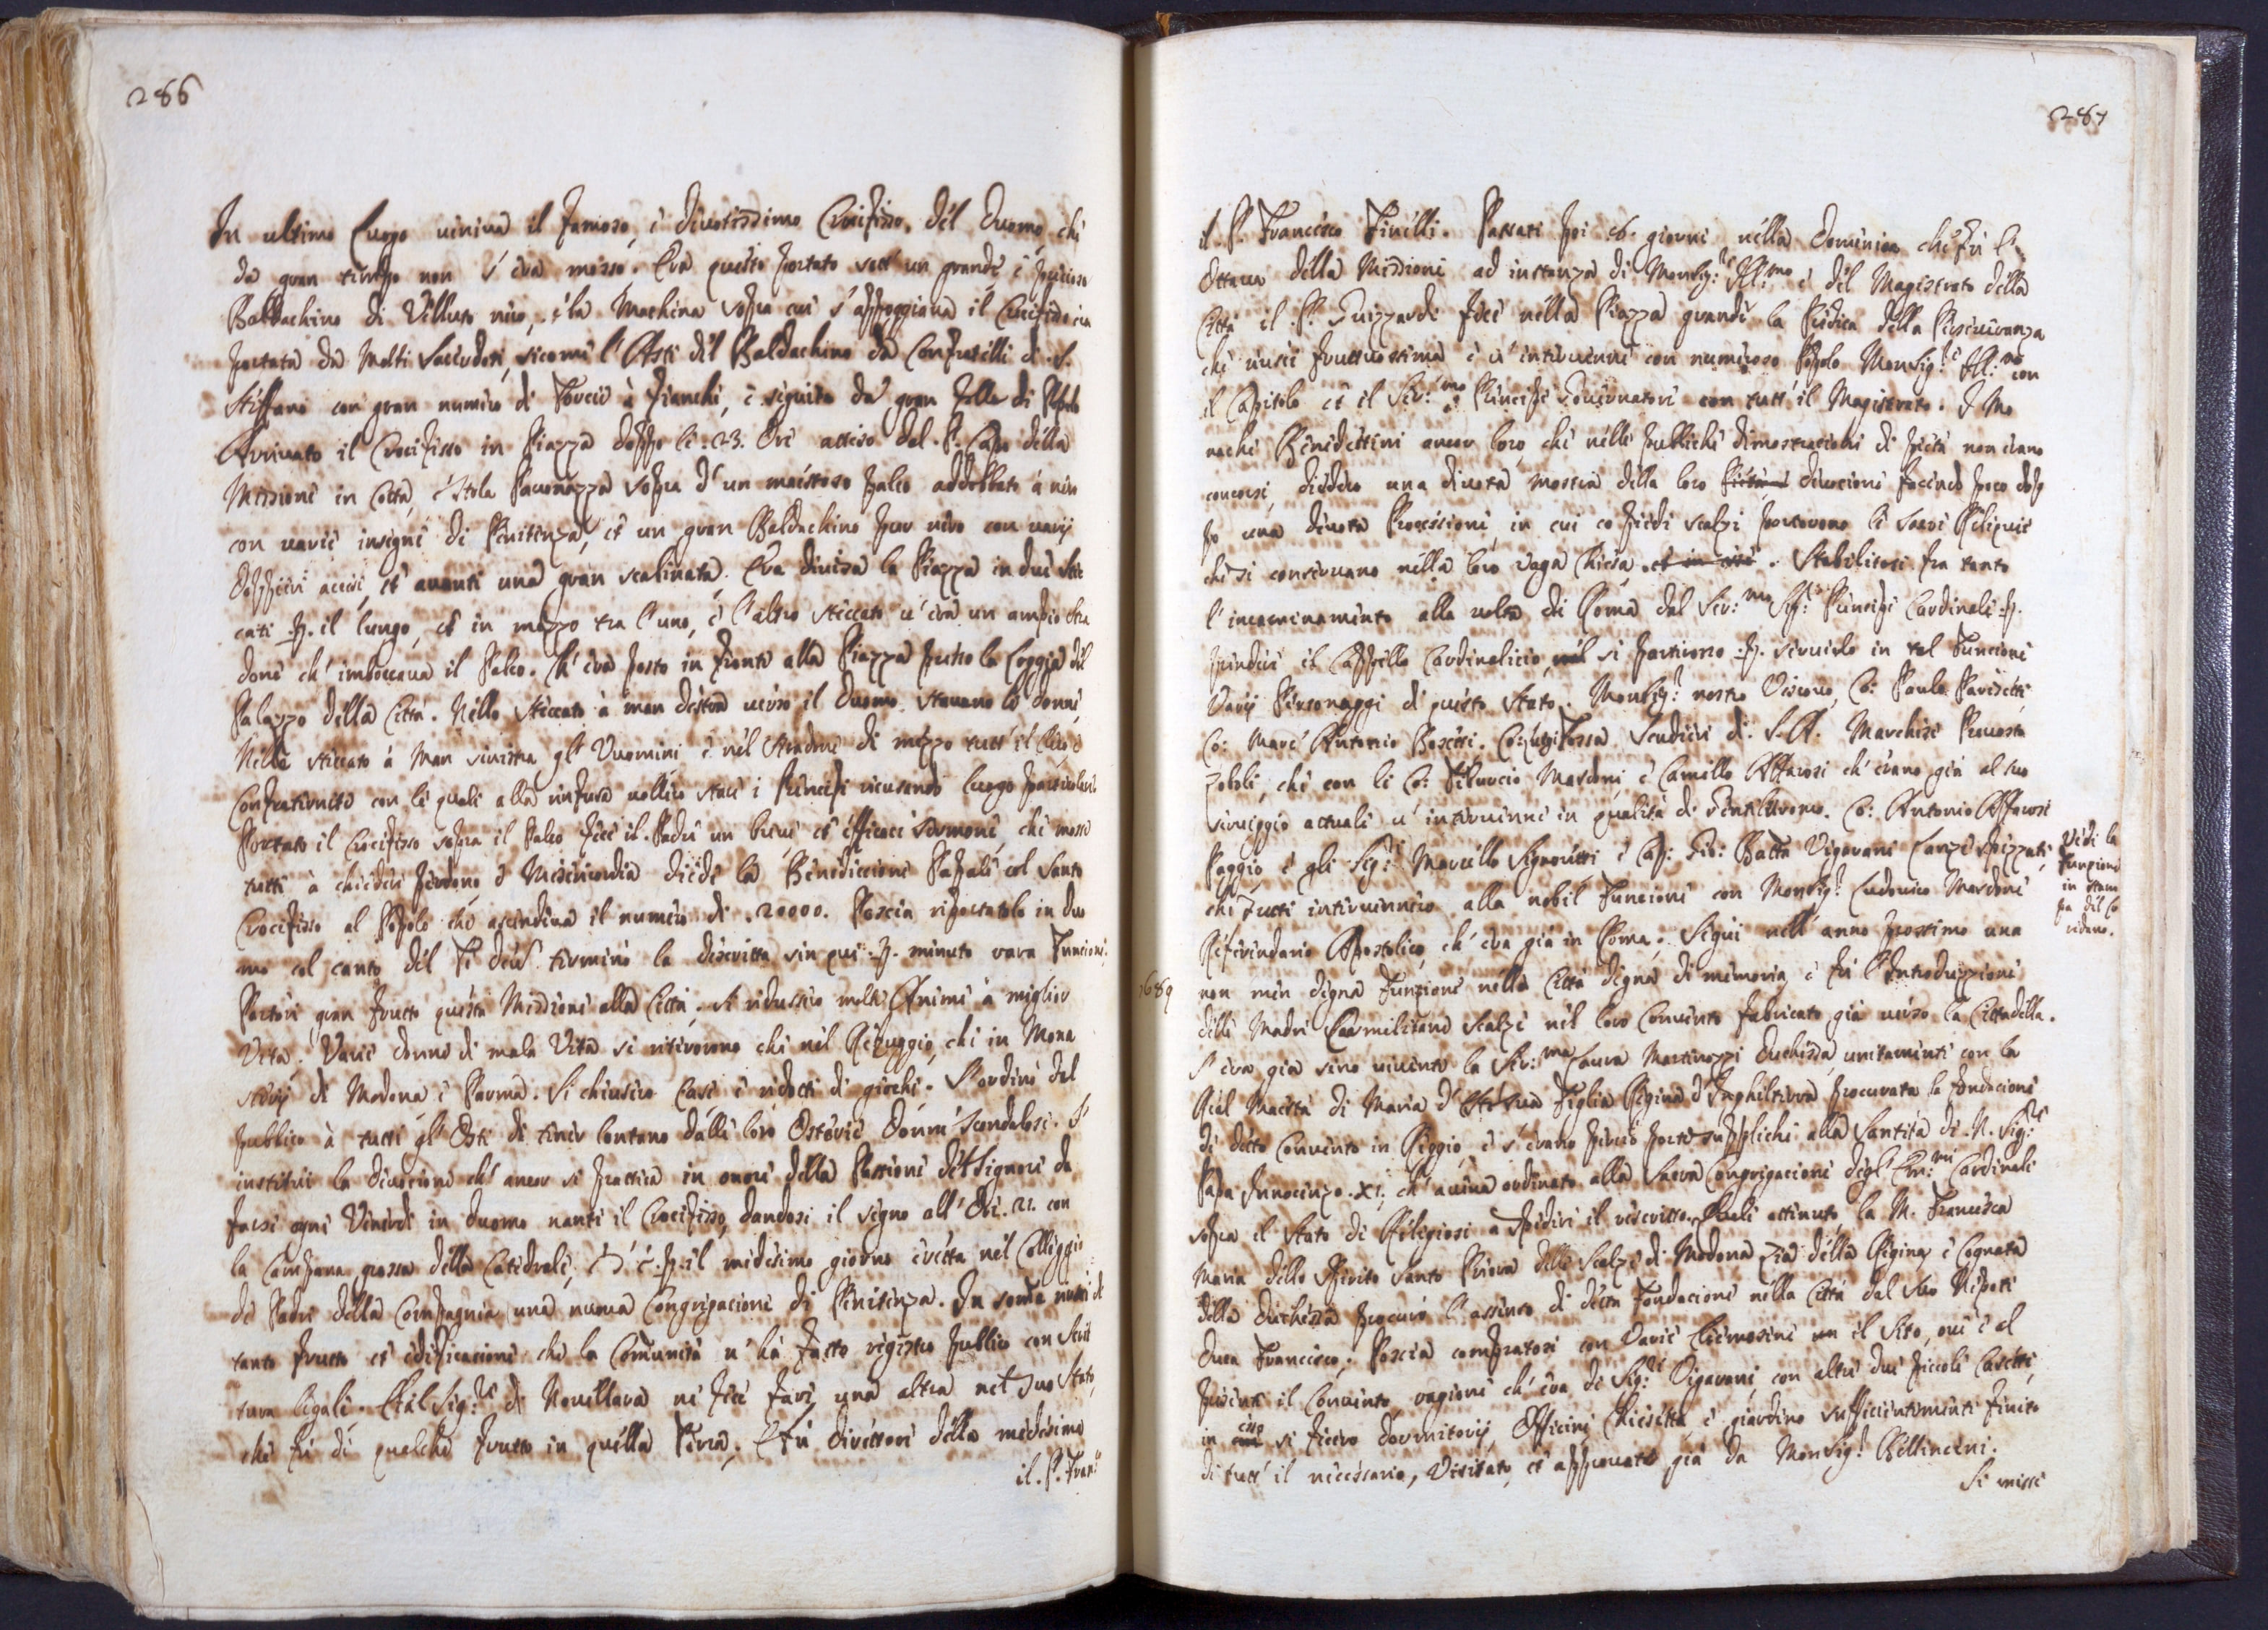 286
In ultimo luogo ueniua il famoso, e diuotissimo Crocifisso del Duomo, che
da gran tempo non s'era mosso. Era questo portato sott' un grande, e prezioso
Baldachino di Velluto nero, e la Machina sopra cui s'appoggiaua il Crocifisso era
portata da Molti Sacerdoti, sicome l'Aste del Baldachino da Confratelli di S.
Steffano con gran numero di Torcie à fianchi, e seguito da gran folla di Popolo
Arriuato il Crocifisso in Piazza doppo le .23. Ore atteso dal P. Capo della
Missione in Cotta, e Stola Pauonazza sopra d'un maestoso palco addobbato à nero
con uarie insegne di Penitenza, et un gran Baldachino pur nero con uarij
doppieri accesi, et auanti una gran scalinata. Era diuisa la Piazza in due Stec
cati p. il lungo, et in mezzo tra l'uno, e l'altro steccato u'era un ampio stra
done ch'imboccaua il Palco. Ch'era posto in fronte alla Piazza presso la Loggia del
Palazzo della Città. Nello steccato à man destra uerso il Duomo stauano le donne,
Nello steccato à Man sinistra gl'Vuomini e nel stradone di mezzo tutt'il Clero e
Confraternite con le quali alla rinfusa uollero stare i Principi ricusando luogo particolare
Portato il Crocifisso sopra il Palco fece il Padre un breue, et efficace Sermone, che mosse
tutti à chieder perdono e Misericordia diede la Benedicione Papale col Santo
Crocifisso al Popolo che ascendeua il numero di .20000. Poscia riportatolo in duo
mo col canto del Te deum terminò la descritta sin qui p. minuto rara Funcione.
Portòri gran frutto questa Missione alla Città. si ridussero molte Anime à miglior
Vita. Varie donne di mala Vita si ritirorono che nel Refuggio, che in Mona
sterij di Modona e Parma. Si chiusero Case e ridotti di giochi. S'ordinò dal
publico à tutti gl'Osti di tener lontano dalle loro Osterie donne Scandalose. S'
instituì la diuocione ch'ancor si prattica in onore della Passione del Signore da
farsi ogni Venerdì in duomo nanti il Crocifisso, dandosi il segno all'Ore .21. con
la Campana grossa della Catedrale, p. il medesimo giorno eretta nel Colleggio
de Padri della Compagnia una nuoua Congregacione di Penitenza. In soma
tanto frutto et edificacione che la Comunità n'ha fatto registro publico con Scrit
tura legale. Il Sig.re di Nouellara ne fece fare una altra nel suo Stato,
che fù di qualche frutto in quella Terra. E fù direttore della medesima
il P. Fran.co
287
il P. Francesco Finelli. Passati poi .6. giorni nella Dominica che fù l'
Ottaua della Missione ad instanza di Monsig.re Ill.mo e del Magistrato della
Città il P. Guizzardi fece nella Piazza grande la Predica della Perseueranza
che riuscì fruttuosissima e u'interuenne con numeroso Popolo Monsig.re Ill.mo con
il Capitolo et il Ser.mo Principe Gouernatore con tutt'il Magistrato. I Mo
nachi Benedettini ancor loro, che nelle publiche dimostracioni di pietà non erano
concorsi, diedero una diuota mostra della loro Pietà diuocione facendo poco dop
po una diuota Processione, in cui co piedi scalzi portorono le Sacre Reliquie
che si conseruano nella loro uaga Chiesa. et in cui . Stabilitosi fra tanto
l'incaminamento alla uolta di Roma dal Ser.mo Sig. Principe Cardinale p.
prender il Cappello Cardinalicio, si partirono p. seruirlo in tal Funcione
Varij Personaggi di questo Stato. Monsig.r nostro Vescouo, Co: Paulo Parisetti,
Co: Marc'Antonio Bosetti. Co: Luigi Fossa Scudieri di S.A. Marchese Prouosto
Zoboli, che con li Co: Tiburcio Masdoni, e Camillo Affarosi ch'erano già al suo
seruiggio actuale u'interuenne in qualità di Gentilhuomo. Co: Antonio Affarosi
Paggio e gli Sig.ri Marcello Signoretti e Cap: Gio: Batta Vigarani Lanze spezzate,
che tutti interuennero alla nobil Funcione con Monsig.r Ludouico Masdoni
Referendario Apostolico, ch'era già in Roma. Seguì nell'anno prossimo una
non men degna Funzione nella Città degna di memoria, e fù l'Introduzzione
delle Madri Carmelitane Scalze nel loro Conuento fabricato già uerso la Cittadella.
S'era già sino uiuente la Ser.ma Laura Martinozzi Duchessa unitamente con la
Real Maestà di Maria d'Este sua Figlia Regina d'Inghilterra procurata la fondacione
di detto Conuento in Reggio, e s'erano perciò porte suppliche alla Santità di N. Sig.re
Papa Innocenzo .XI., ch'aueua ordinato alla Sacra Congregacione degl'Em.mi Cardinali
sopra il Stato di Religiosi a spedire il rescritto. Quale ottenuto, la M. Francesca
Maria dello Spirito Santo Priora delle Scalze di Modona Zia della Regina, e Cognata
della Duchessa procurò l'assenso di detta Fondacione nella Città dal suo Nepote
Duca Francesco. Poscia compratosi con Varie Elemosine un il Sito, oue è al
presente il Conuento, ragione ch'era de Sig.ri Vigarani, con altre due piccole Casette,
in esso si fecero dormitorij, Officine Chiesetta, e giardino sufficientemente finito
di tutt'il necessario, Visitato, et approuato già da Monsig.r Bellincini.
Si misse
Vedi la
Funzione
in stam
pa del Co
ridono.
1689